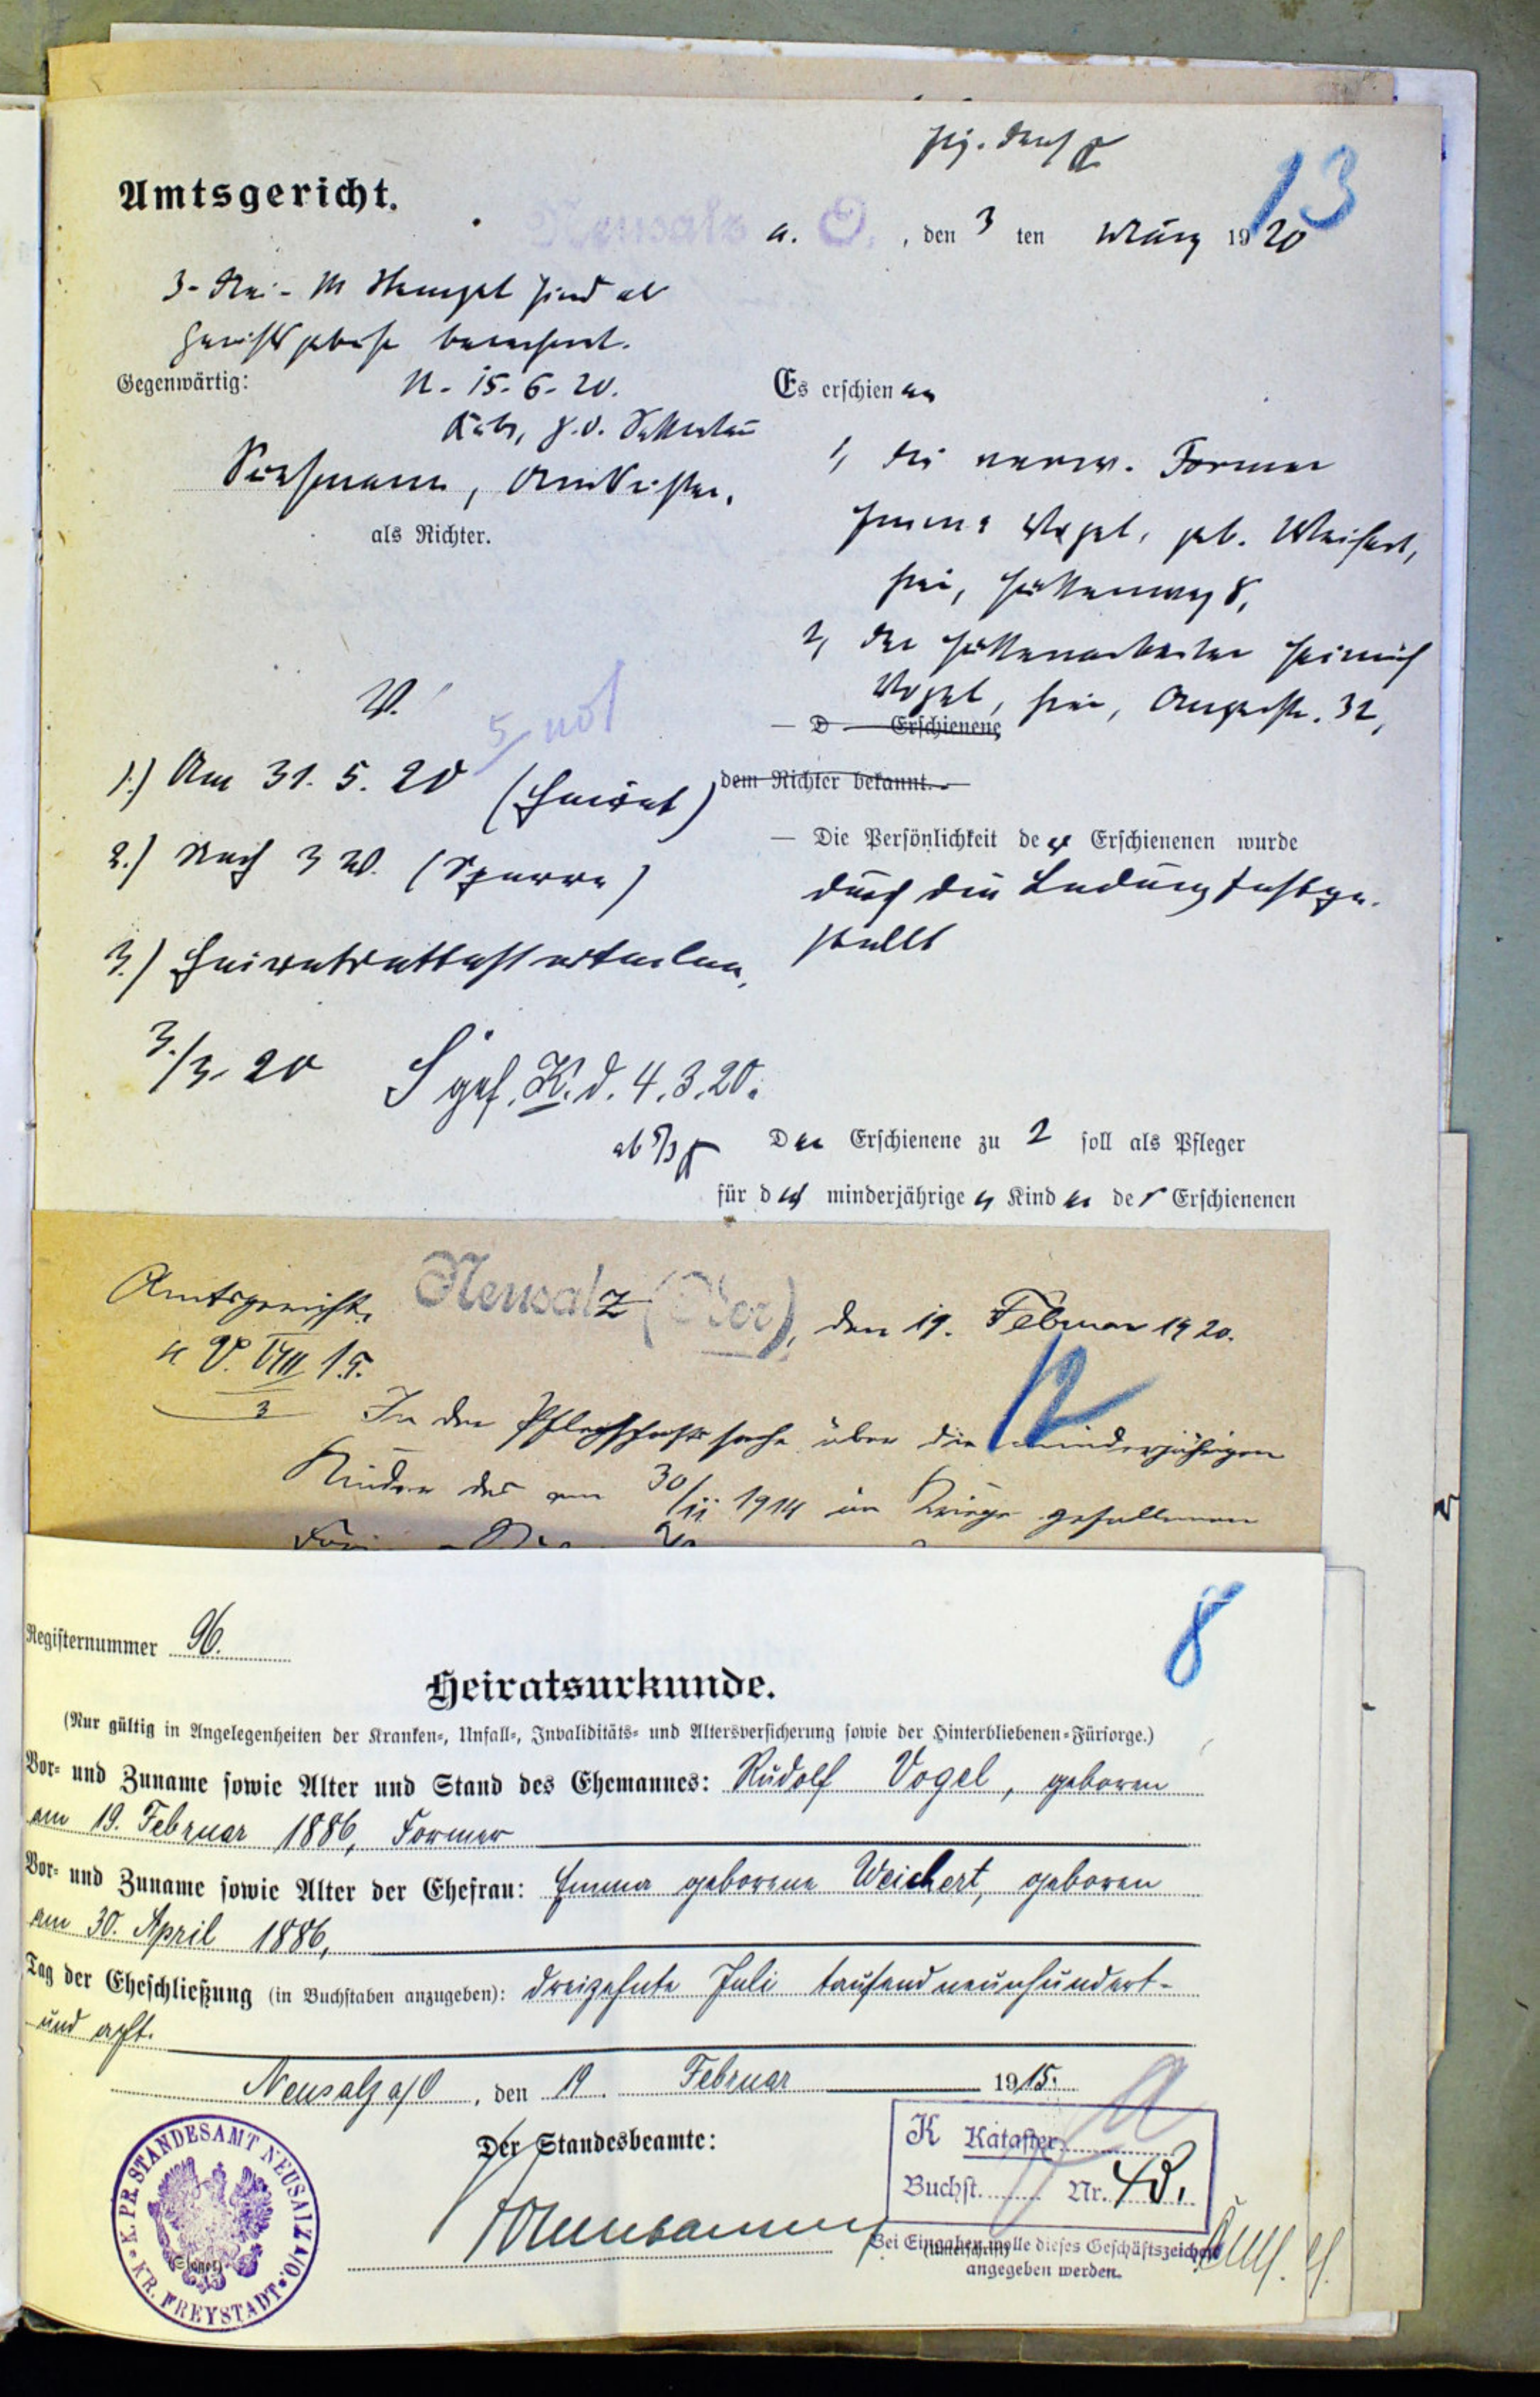 13
Amtsgericht.
Neusalz a. O., den 3 ten März 1920
3 - Drei - M Stempel sind als
berechnet.
Gegenwärtig:
N. 15. 6. 20.
Es erschienen
als Richter.
1, die verw. Former
Emma Vogel, geb. Weichert,
hier, Hüttenweg 8,
2, der Hüttenarbeiter Heinrich
Vogel, hier, Auguststr. 32,
— D — Erschienene
dem Richter bekannt. —
— Die Persönlichkeit der Erschienenen wurde
durch die Ladung festge-
stellt
V.
1.) Am 31. 5. 20 (Heirat)
2.) Nach 3 W. (Sperre)
3.) Heiratsattest erteilen.
3./3. 20
gef. K. d. 4. 3. 20.
ab 5/3
Der Erschienene zu 2 soll als Pfleger
für die minderjährigen Kinder der Erschienenen
Amtsgericht.
Neusalz (Oder), den 19. Februar 1920.
VIII 15.
3
12
In der Pflegschaftssache über die minderjährigen
Kinder des am 30/11. 1914 im Kriege gefallenen
8
Registernummer 96.
Heiratsurkunde.
(Nur gültig in Angelegenheiten der Kranken-, Unfall-, Invaliditäts- und Altersversicherung sowie der Hinterbliebenen-Fürsorge.)
Vor- und Zuname sowie Alter und Stand des Ehemannes: Rudolf Vogel, geboren
am 19. Februar 1886, Former
Vor- und Zuname sowie Alter der Ehefrau: Emma geborene Weichert, geboren
am 30. April 1886,
Tag der Eheschließung (in Buchstaben anzugeben): dreizehnte Juli tausendneunhundert-
und acht.
Neusalz a/O, den 19. Februar 1915.
Der Standesbeamte:
K. PR. STANDESAMT NEUSALZ A/O
KR. FREYSTADT
(Siegel)
K Kataster
Buchst. Nr. 48.
(Unterschrift)
Bei Eingaben wolle dieses Geschäftszeichen
angegeben werden.